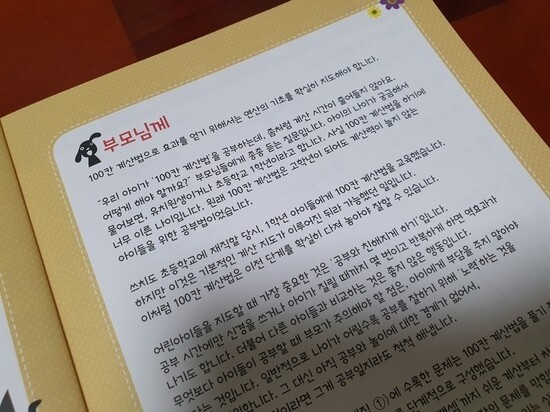 부모님께
100칸 계산법으로 효과를 얻기 위해서는 연산의 기초를 확실히 지도해야 합니다.
"우리 아이가 '100칸 계산법'을 공부하는데, 좀처럼 계산 시간이 줄어들지 않아요.
어떻게 해야 할까요?" 부모님들에게 종종 듣는 질문입니다. 아이의 나이가 궁금해서
물어보면, 유치원생이거나 초등학교 1학년이라고 합니다. 사실 100칸 계산법을 하기에
너무 이른 나이입니다. 원래 100칸 계산법은 고학년이 되어도 계산력이 늘지 않는
아이들을 위한 공부법이었습니다.
쓰치도 초등학교에 재직할 당시, 1학년 아이들에게 100칸 계산법을 교육했습니다.
하지만 이것은 기본적인 계산 지도가 이루어진 뒤라 가능했던 일입니다.
이처럼 100칸 계산법은 이전 단계를 확실히 다져 놓아야 잘할 수 있습니다.
어린아이들을 지도할 때 가장 중요한 것은 '공부와 친해지게 하기'입니다.
공부 시간에만 신경을 쓰거나 아이가 질릴 때까지 몇 번이고 반복하게 하면 역효과가
나기도 합니다. 더불어 다른 아이들과 비교하는 것은 좋지 않은 행동입니다.
무엇보다 아이들이 공부할 때 부모가 주의해야 할 점은, 아이에게 부담을 주지 말아야
하는 것입니다. 일반적으로 나이가 어릴수록 공부를 잘하기 위해 '노력'하는 것을
합니다. 그 대신 아직 공부와 놀이에 대한 경계가 없어서,
이라면 그게 공부일지라도 척척 해냅니다.
①)에 수록한 문제는 100칸 계산법을 풀기
단계적으로 구성했습니다.
쉬운 계산부터